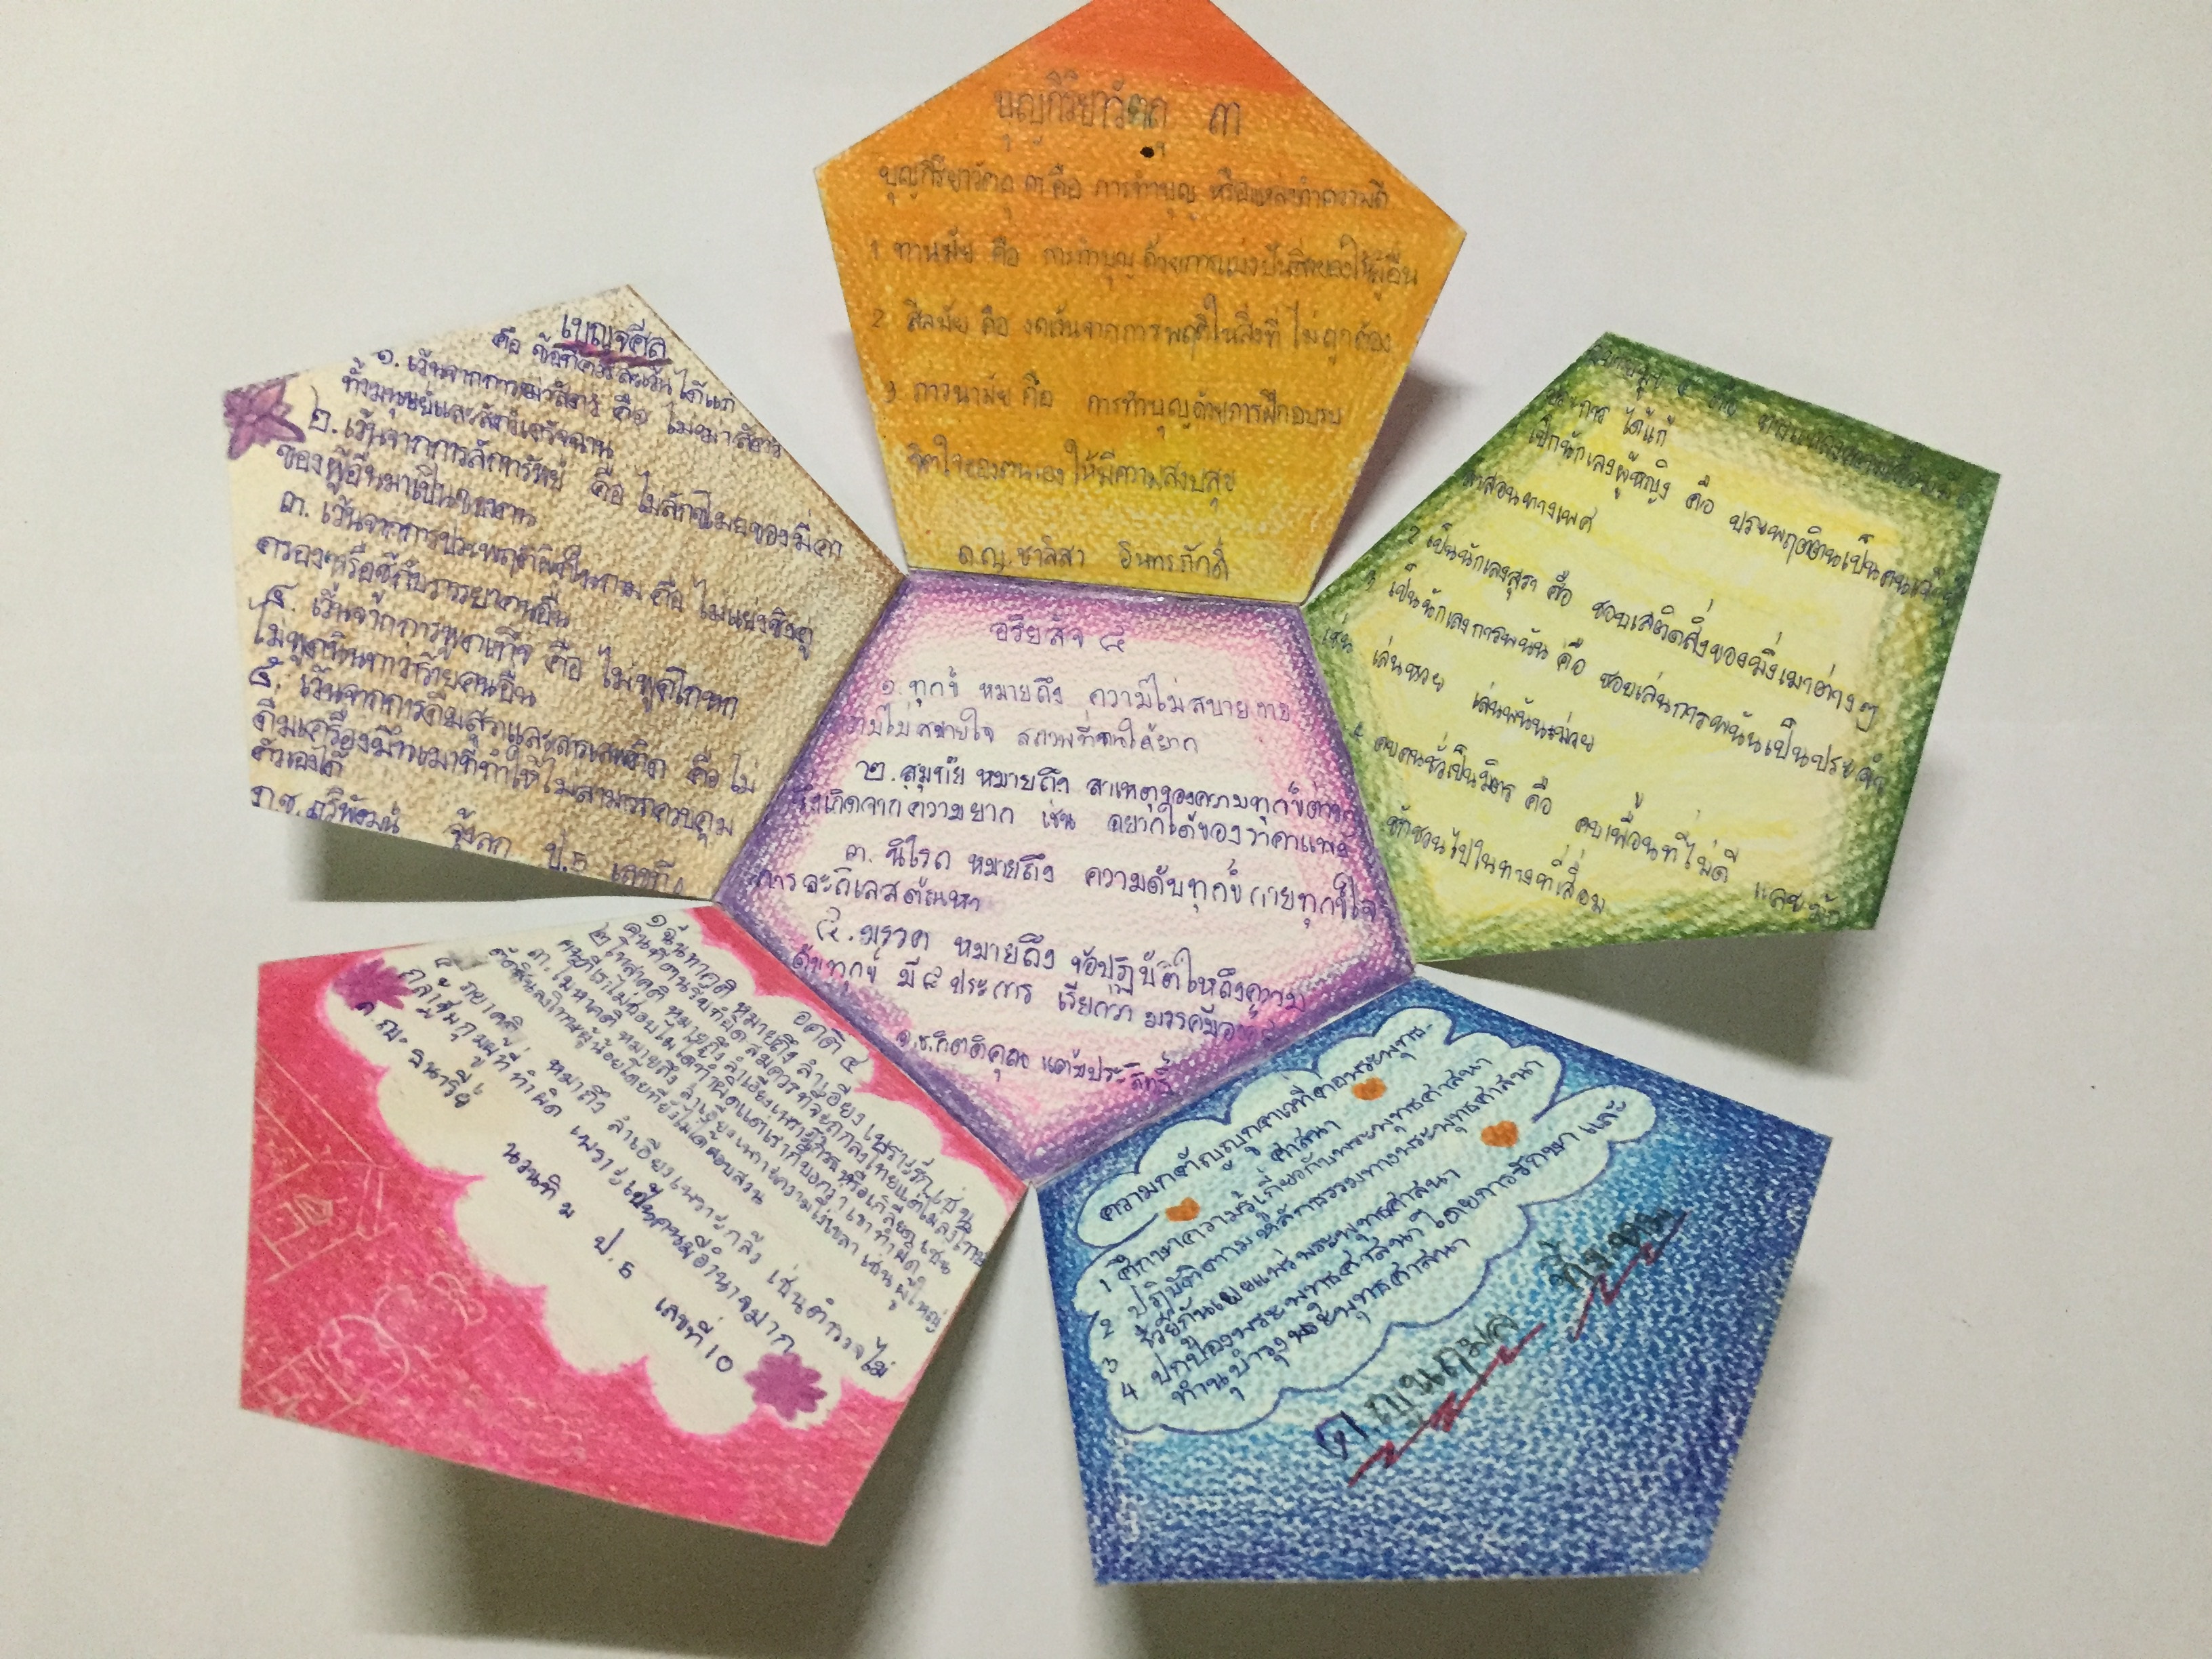 บุญกิริยาวัตถุ ๓
บุญกิริยาวัตถุ ๓ คือ การทำบุญ หรือแหล่งทำความดี
1 ทานมัย คือ การทำบุญด้วยการแบ่งปันสิ่งของให้ผู้อื่น
2 สีลมัย คือ งดเว้นจากการพฤติในสิ่งที่ไม่ถูกต้อง
3 ภาวนามัย คือ การทำบุญด้วยการฝึกอบรบ
จิตใจของตนเองให้มีความสงบสุข
ด.ญ.ชาลิสา อินทรภักดิ์
เบญจศีล
คือ ข้อที่ควรละเว้น ได้แก่
๑. เว้นจากการฆ่าสัตว์ คือ ไม่ฆ่าสัตว์
ทั้งมนุษย์และสัตว์เดรัจฉาน
๒. เว้นจากการลักทรัพย์ คือ ไม่ลักขโมยของมีค่า
ของผู้อื่นมาเป็นของตน
๓. เว้นจากการประพฤติผิดในกาม คือ ไม่แย่งชิงคู่
ครองหรือชู้กับภรรยาคนอื่น
๔. เว้นจากการพูดเท็จ คือ ไม่พูดโกหก
ไม่พูดนินทาว่าร้ายคนอื่น
๕. เว้นจากการดื่มสุราและสารเสพติด คือ ไม่
ดื่มเครื่องมึนเมาที่ทำให้ไม่สามารถควบคุม
ตัวเองได้
ป.5 เลขที่
อบายมุข ๔ คือ ทางแห่งความเสื่อม
ประการ ได้แก่
1 เป็กนักเลงผู้หญิง คือ ประพฤติตนเป็นคนเจ้าชู้
ส่ำส่อนทางเพศ
2 เป็นนักเลงสุรา คือ ชอบเสติดสิ่งของมึงเมาต่างๆ
3 เป็นนักเลงการพนัน คือ ชอบเล่นการพนันเป็นประจำ
เช่น เล่นหวย เล่นพนันม้วย
4 คบคนชั่วเป็นมิตร คือ คบเพื่อนที่ไม่ดี และมัก
ชักชวนไปในทางที่เสื่อม
อริยสัจ ๔
๑. ทุกข์ หมายถึง ความไม่สบายกาย
ไม่สบายใจ สภาพที่ทนได้ยาก
๒. สมุทัย หมายถึง สาเหตุของความทุกข์ต่าง
ซึ่งเกิดจากความยาก เช่น อยากได้ของราคาแพง
๓. นิโรถ หมายถึง ความดับทุกข์กายทุกข์ใจ
การละกิเลสตัณหา
๔. มรรค หมายถึง ข้อปฏิบัติให้ถึงความ
ดับทุกข์ มี ๘ ประการ เรียกว่า มรรคมีองค์ ๘
ด.ช.กิตติคุณ แต้มประสิทธิ์
อคติ ๔
๑ ฉันทาคติ หมายถึง ลำเอียงเพราะรัก เช่น
คนที่ตนรักทำผิดสมควรที่จะถูกลงโทษแต่ไม่ลงโทษ
๒ โทสาคติ หมายถึง ลำเอียงเพราะโกรธหรือเกลียด เช่น
คนที่เราไม่ชอบไม่ได้ทำผิดแต่เราก็บอกว่าเขาทำผิด
๓. โมหาคติ หมายถึง ลำเอียงเพราะความโง่เขลา เช่น ผู้ใหญ่
ตัดสินลงโทษผู้น้อยโดยที่ยังไม่ได้สอบสวน
๔ ภยาคติ หมาถึง ลำเอียงเพราะกลัว เช่นตำรวจไม่
กล้าจับกุมผู้ที่ทำผิด เพราะเป็นคนมีอำนาจมาก
ด.ญ. ธนารีย์ นวนทิม ป.5 เลขที่ 10
ความกตัญญูกตเวทีต่อพระพุทธ-
ศาสนา
1 ศึกษาความรู้เกี่ยวกับพระพุทธศาสนา
2 ปฏิบัติตามหลักธรรมทางพระพุทธศาสนา
3 ช่วยกันเผยแพร่พระพุทธศาสนา
4 ปกป้องพระพุทธศาสนา โดยการรักษา และ
ทำนุบำรุงพระพุทธศาสนา
ด.ญ นฤมล